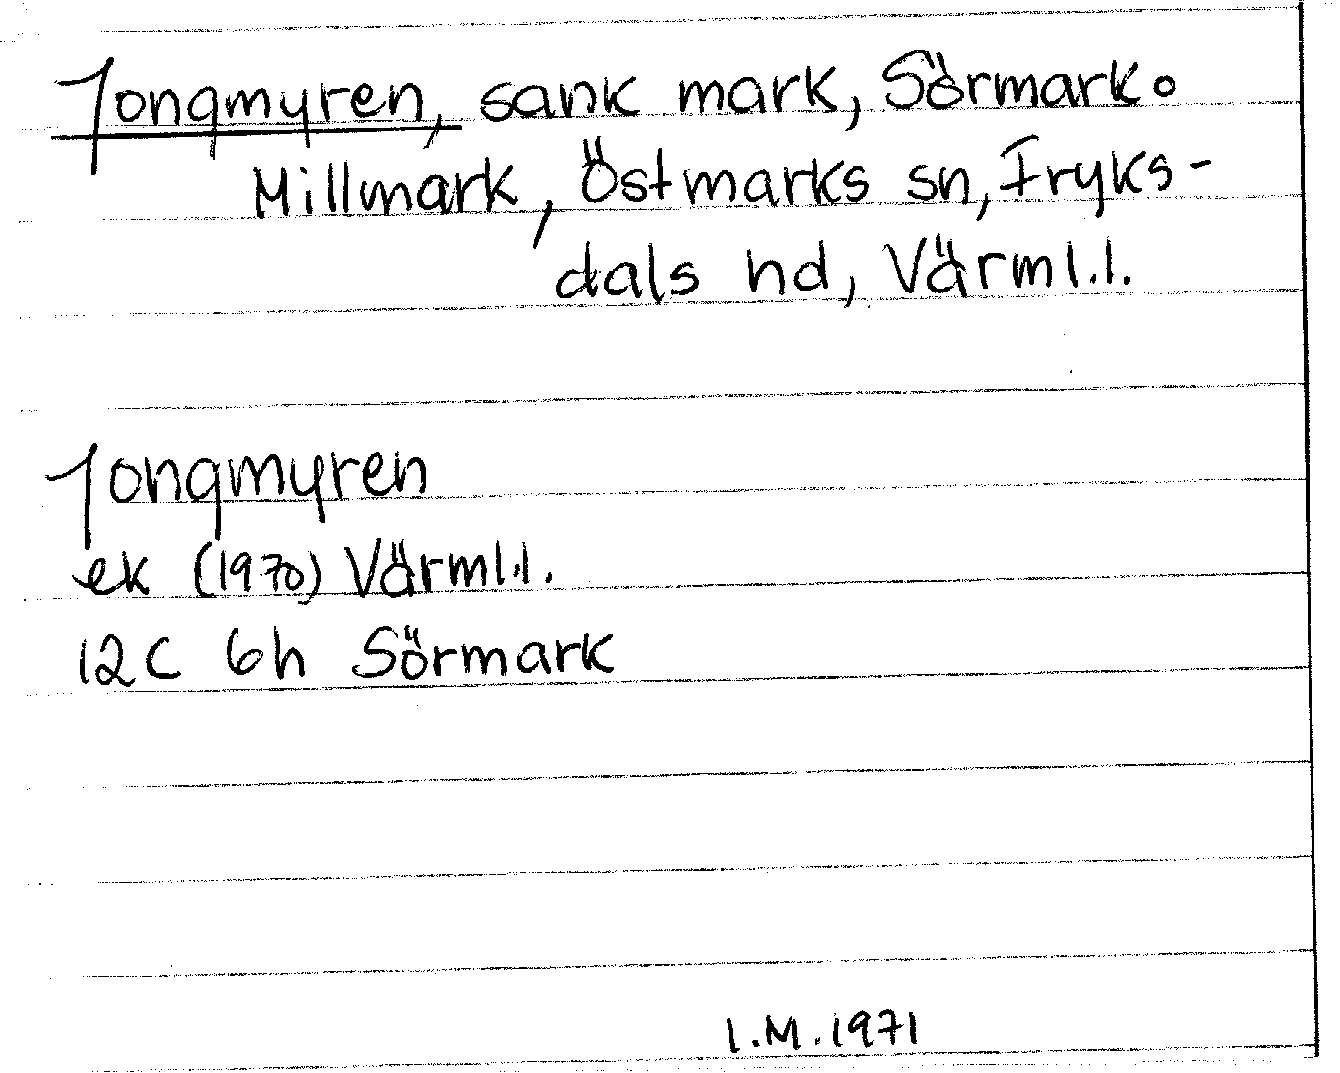 Jongmyren, sank mark, Sörmark o
Millmark, Östmarks sn, Fryks-
dals hd, Värml.l.
Jongmyren
ek (1970) Värml.l.
12C 6h Sörmark
I.M.1971